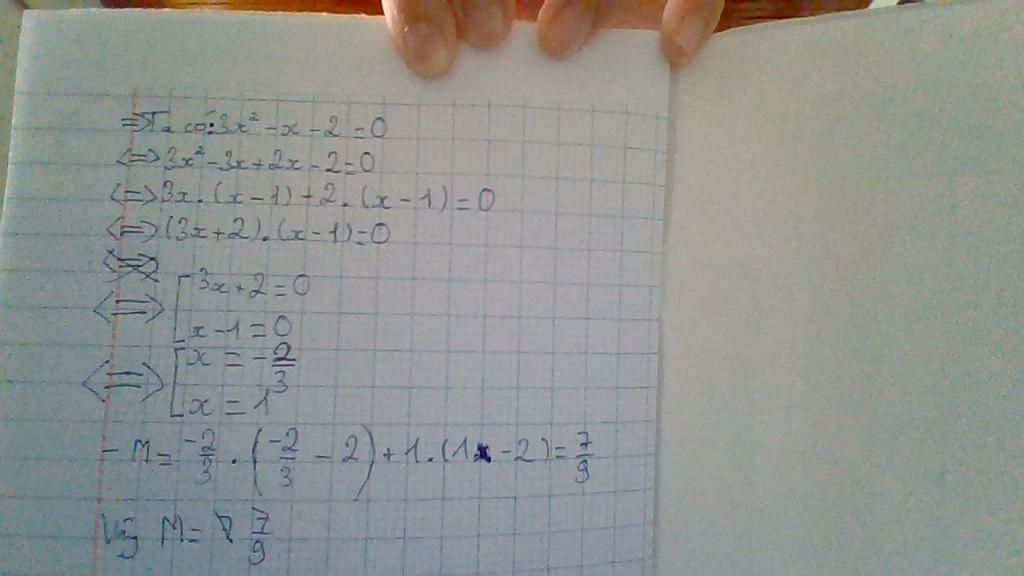 => Ta có: 3x² - x - 2 = 0
<=> 3x² - 3x + 2x - 2 = 0
<=> 3x . (x - 1) + 2 . (x - 1) = 0
<=> (3x + 2) . (x - 1) = 0
<=> [ 3x + 2 = 0
x - 1 = 0
<=> [ x = -2/3
x = 1
- M = -2/3 . (-2/3 - 2) + 1 . (1 - 2) = 7/9
Vậy M = 7/9